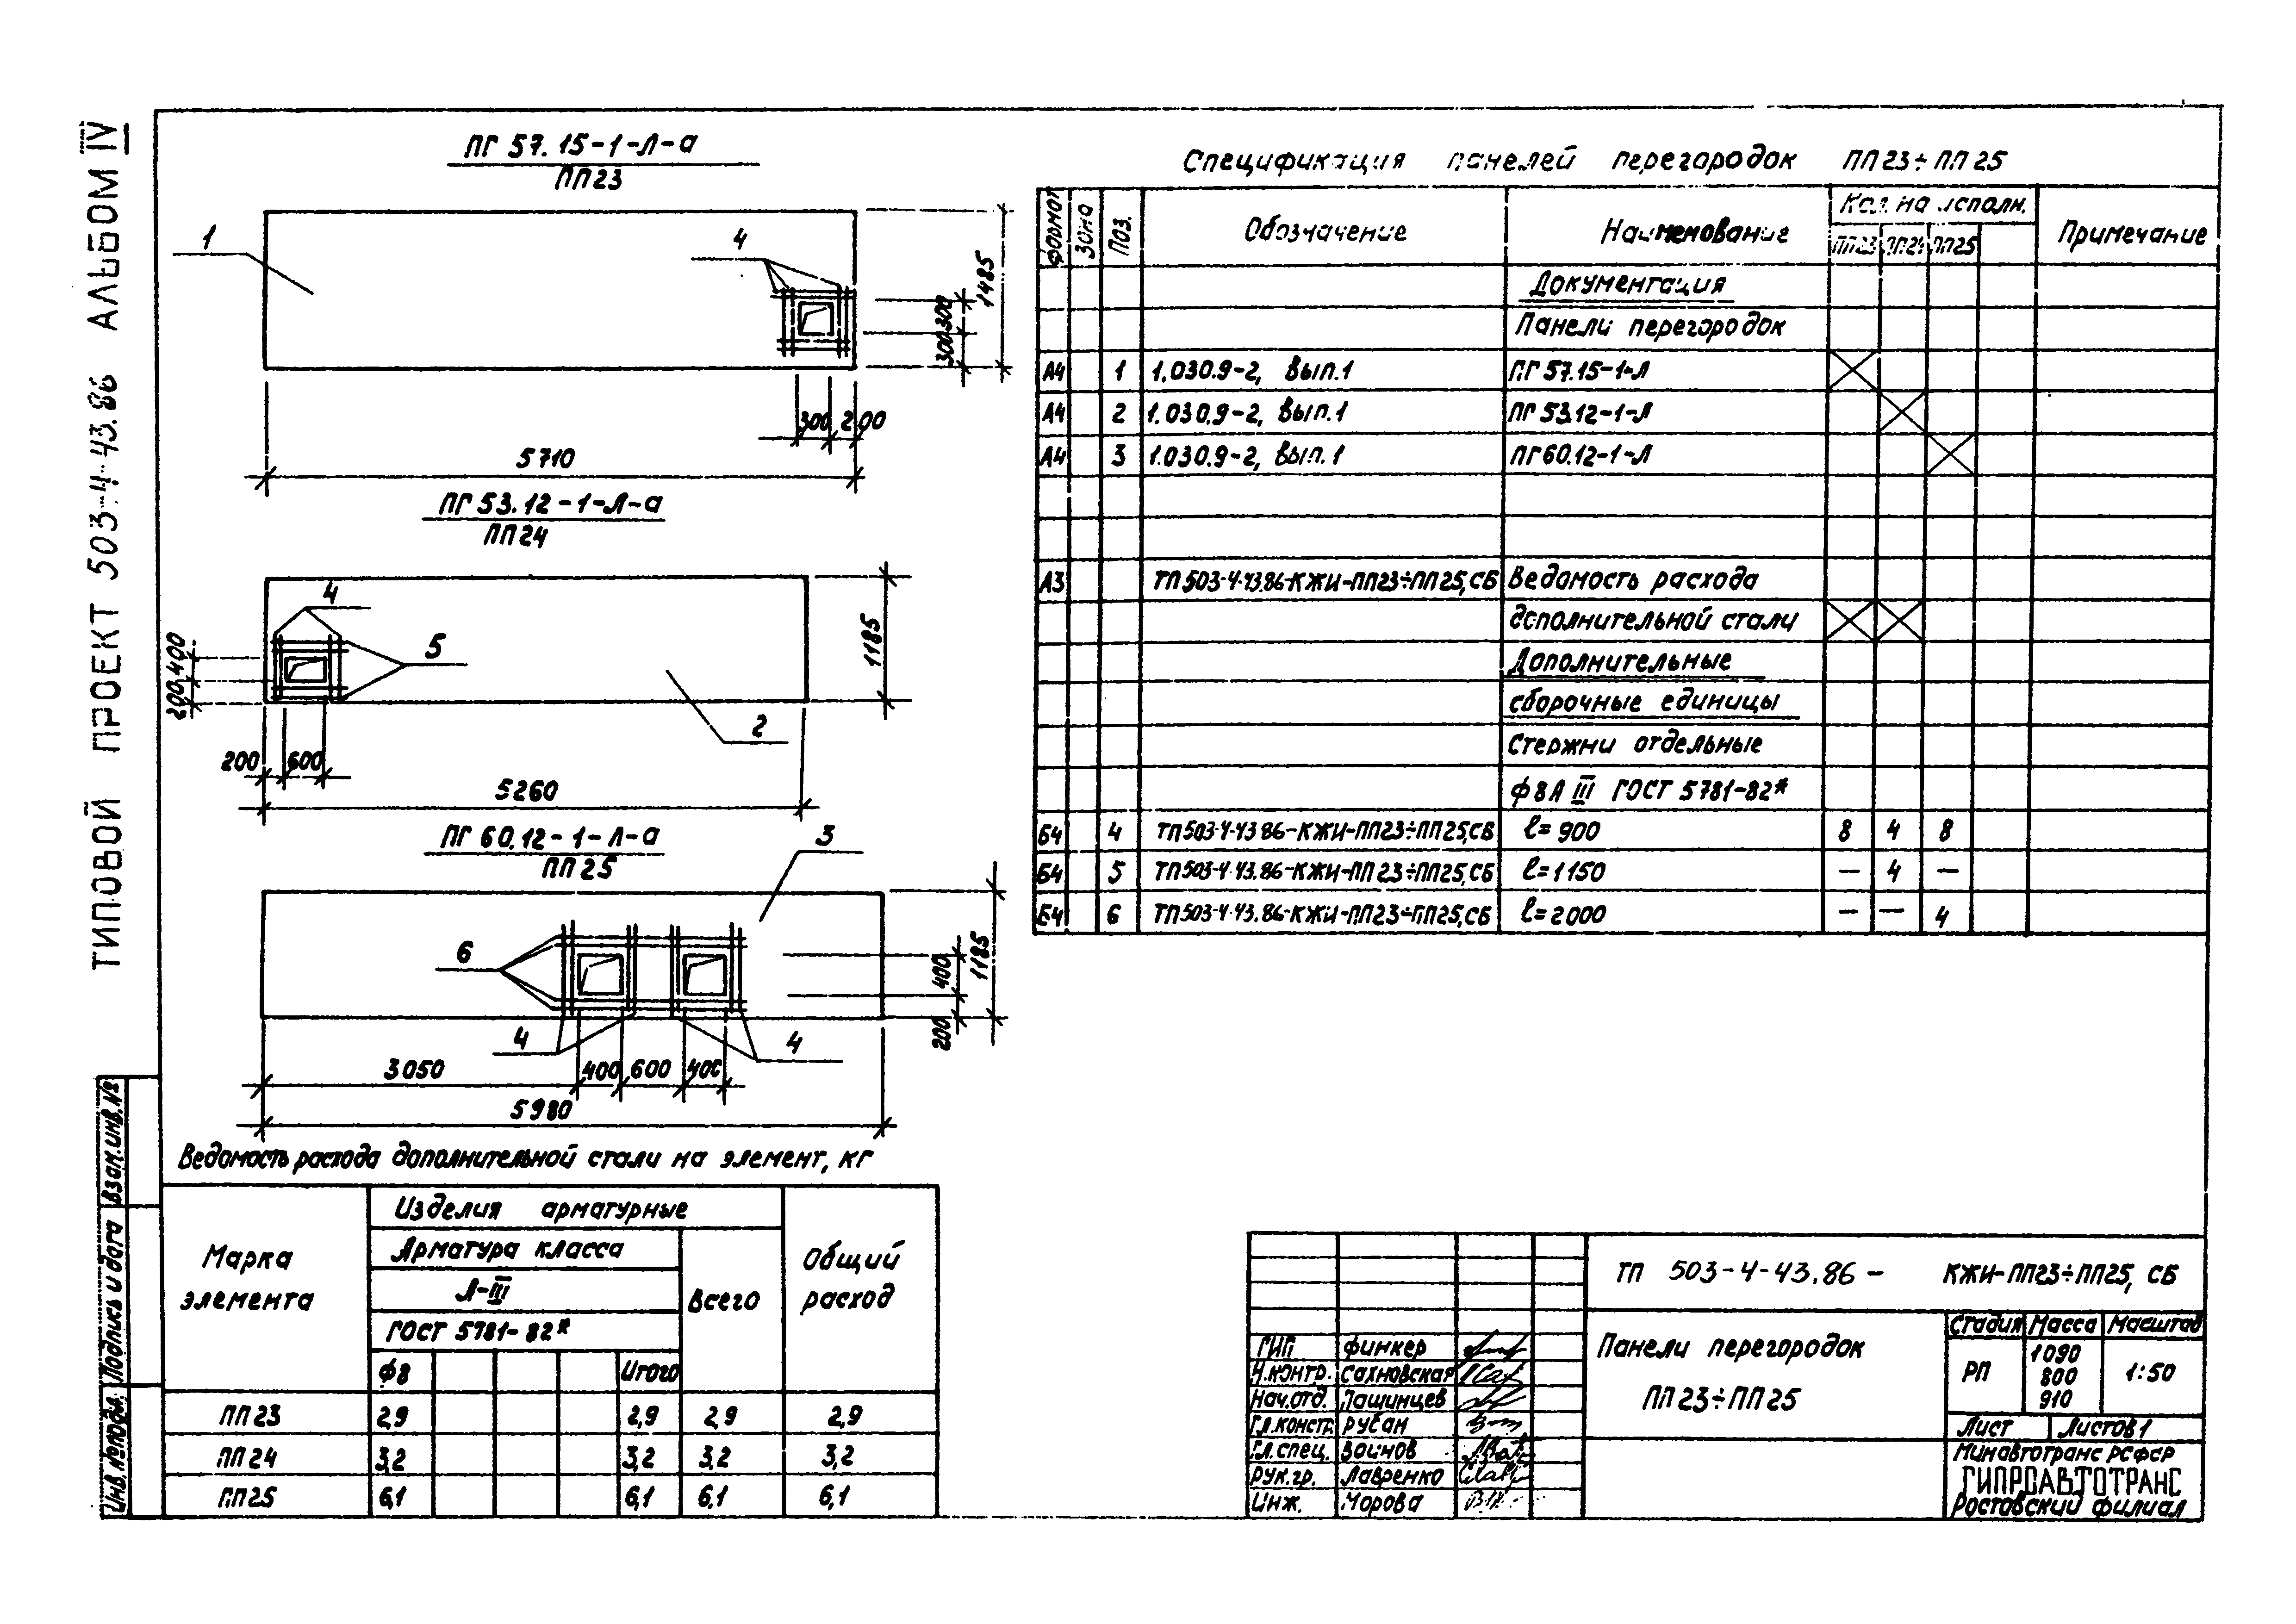 ТИПОВОЙ ПРОЕКТ 503-4-43.86 АЛЬБОМ IV
ПГ 57.15-1-Л-а
ПП23
1
4
1485
300 300
300 200
5710
ПГ 53.12-1-Л-а
ПП24
4
5
2
1185
200 400
200 600
5260
ПГ 60.12-1-Л-а
ПП25
3
6
4 4
1185
400
200
3050 400 600 400
5980
Спецификация панелей перегородок ПП23÷ПП25
Формат Зона Поз. Обозначение Наименование Кол. на исполн. Примечание
ПП23 ПП24 ПП25
Документация
Панели перегородок
А4 1 1.030.9-2, вып.1 ПГ 57.15-1-Л
А4 2 1.030.9-2, вып.1 ПГ 53.12-1-Л
А4 3 1.030.9-2, вып.1 ПГ 60.12-1-Л
А3 ТП 503-4-43.86-КЖИ-ПП23÷ПП25, СБ Ведомость расхода
дополнительной стали
Дополнительные
сборочные единицы
Стержни отдельные
Ф8А III ГОСТ 5781-82*
Б4 4 ТП 503-4-43.86-КЖИ-ПП23÷ПП25, СБ ℓ=900 8 4 8
Б4 5 ТП 503-4-43.86-КЖИ-ПП23÷ПП25, СБ ℓ=1150 — 4 —
Б4 6 ТП 503-4-43.86-КЖИ-ПП23÷ПП25, СБ ℓ=2000 — — 4
Ведомость расхода дополнительной стали на элемент, кг
Марка элемента Изделия арматурные Общий расход
Арматура класса Всего
А-III
ГОСТ 5781-82*
Ф8 Итого
ПП23 2,9 2,9 2,9 2,9
ПП24 3,2 3,2 3,2 3,2
ПП25 6,1 6,1 6,1 6,1
Взам. инв. №
Подпись и дата
Инв. № подл.
ТП 503-4-43.86- КЖИ-ПП23÷ПП25, СБ
ГИП Финкер
Н.контр. Сахновская
Нач.отд. Пашинцев
Гл.констр. Рубан
Гл.спец. Воинов
Рук.гр. Лавренко
Инж. Морова
Панели перегородок
ПП23÷ПП25
Стадия Масса Масштаб
РП 1090 1:50
800
910
Лист Листов 1
Минавтотранс РСФСР
ГИПРОАВТОТРАНС
Ростовский филиал